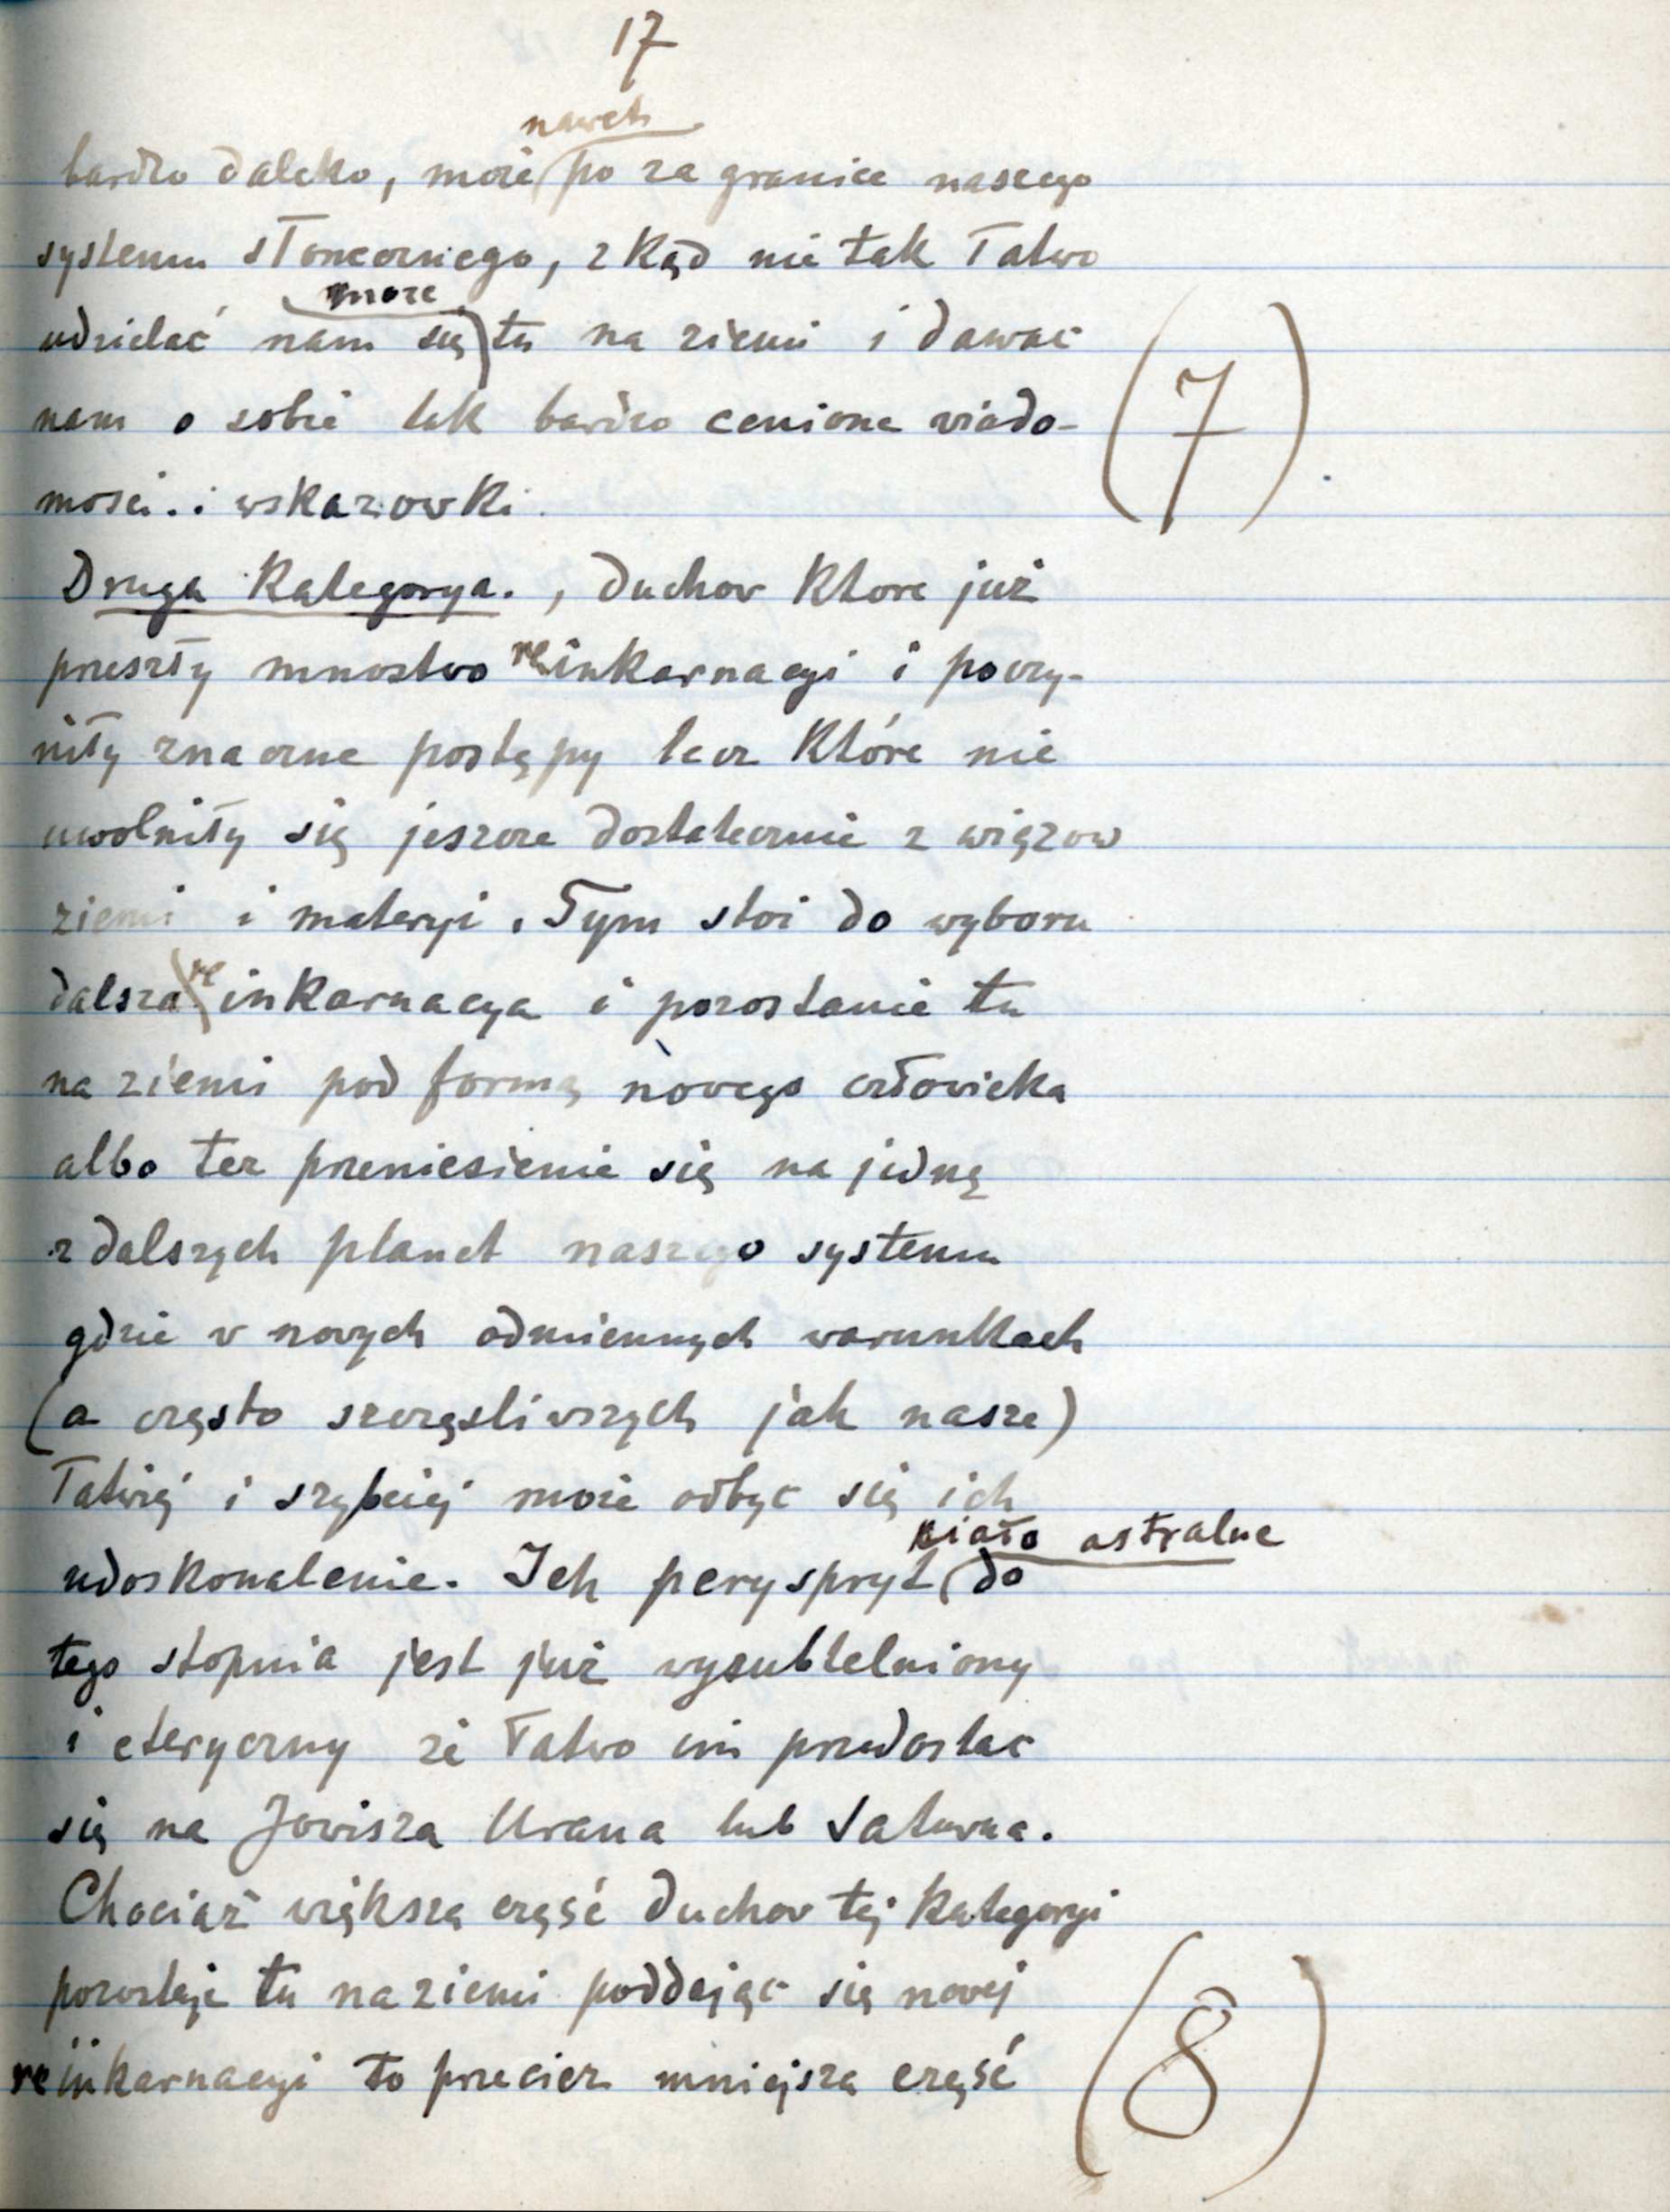 17
nawet
bardzo daleko, może po za granice naszego
systemu słonecznego, zkąd nie tak łatwo
może
udzielać nam się tu na ziemi i dawac
nam o sobie tak bardzo cenione wiado-
mosci. i wskazowki.
(7)
Druga Kategorya., duchow Ktore już
przeszły mnostwo reinkarnacyi i poczy-
niły znaczne postępy lecz Które nie
uwolniły się jeszcze dostatecznie z więzow
ziemi i materyi. Tym stoi do wyboru
dalsza reinkarnacya i pozostanie tu
na ziemi pod formą nowego człowieka
albo tez przeniesienie się na jedną
z dalszych planet naszego systemu
gdzie w nowych odmiennych warunkach
(a często szczęsliwszych jak nasze)
łatwiej i szybciej może odbyc się ich
ciało astralne
udoskonalenie. Ich peryspryt do
tego stopnia jest już wysubtelniony
i eteryczny że łatwo im przedostac
się na Jowisza Urana lub Saturna.
Chociaż większa część duchow tej Kategoryi
pozostaje tu na ziemi poddając się nowej
reinkarnacyi to przeciez mniejsza część
(8)